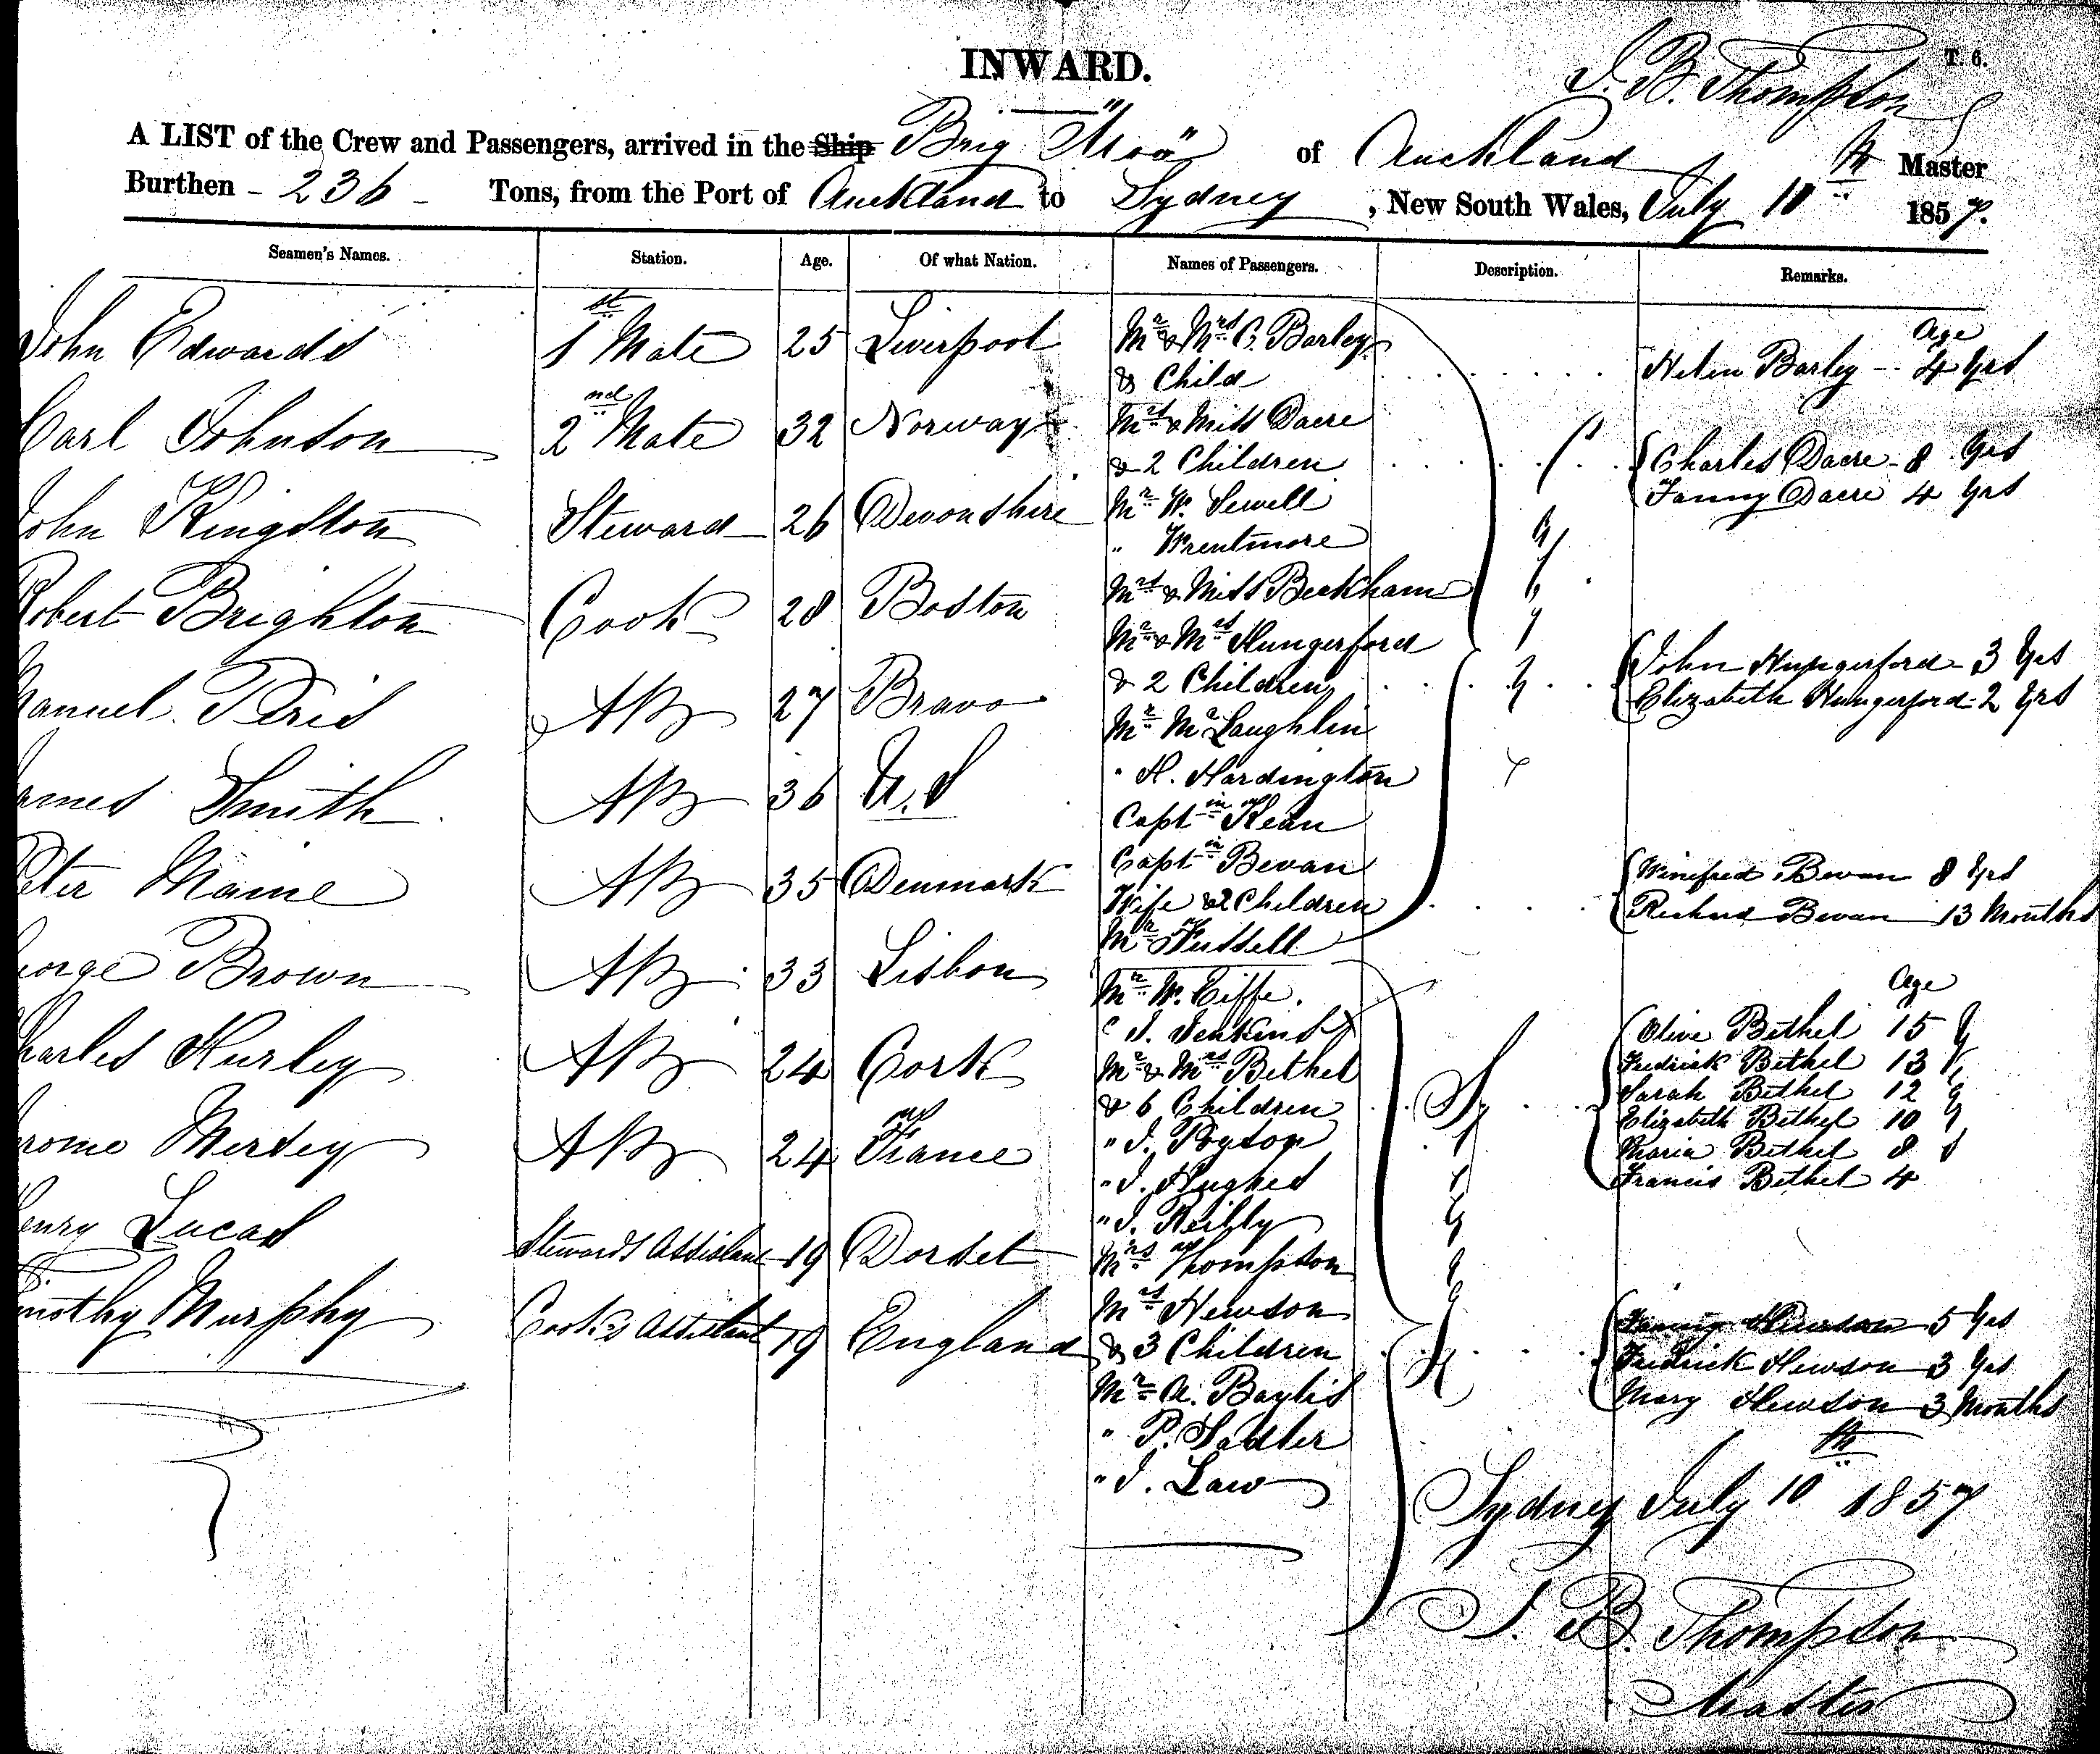 INWARD.
T. 6.
J. B. Thompson
A LIST of the Crew and Passengers, arrived in the Ship Brig "Moa" of Auckland Master
Burthen - 236 - Tons, from the Port of Auckland to Sydney, New South Wales, July 10th 1857.
Seamen's Names. Station. Age. Of what Nation. Names of Passengers. Description. Remarks.
John Edwards 1st Mate 25 Liverpool
Carl Johnson 2nd Mate 32 Norway
John Kingston Steward 26 Devonshire
Robert Brighton Cook 28 Boston
Manuel AB 27 Bravo
James Smith AB 36 U.S
Peter Maine AB 35 Denmark
George Brown AB 33 Lisbon
Charles Hurley AB 24 Cork
Jerome Mersey AB 24 France
Henry Lucas Steward's Assistant 19 Dorset
Timothy Murphy Cook's Assistant 19 England
Mr & Mrs C. Barley
& Child
Mrs & Miss Dacre
& 2 Children
Mr W. Sewell
" Wrentmore
Mrs & Miss Beckham
Mr & Mrs Hungerford
& 2 Children
Mr McLaughlin
" H. Hardington
Captin Kean
Captin Bevan
Wife & 2 Children
Mr Fussell
Mr W. Eiffe.
" J. Jenkins
Mr & Mrs Bethel
& 6 Children
" J.
" J. Hughes
" J. Reilly
Mrs Thompson
Mrs Hewson
& 3 Children
Mr A. Baylis
" P. Sadler
" J. Law
Age
Helen Barley -- 4 yrs
Charles Dacre - 8 yrs
Fanny Dacre 4 yrs
John Hungerford - 3 yrs
Elizabeth Hungerford - 2 yrs
Winifred Bevan 8 yrs
Richard Bevan 13 Months
Age
Olive Bethel 15
Fredrick Bethel 13
Sarah Bethel 12
Elizabeth Bethel 10
Maria Bethel 8
Francis Bethel 4
Fanny Hewson 5 yrs
Fredrick Hewson 3 yrs
Mary Hewson 3 Months
Sydney July 10th 1857
J. B. Thompson
Master